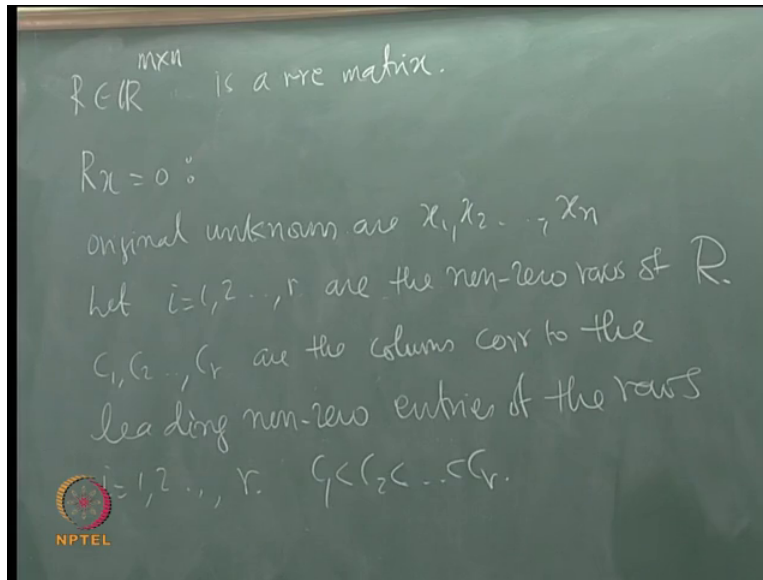 R∈ℝ^{m×n} is a rre matrix.
Rx=0:
original unknowns are x₁, x₂ ..., xₙ
Let i=1,2..., r are the non-zero rows of R.
C₁, C₂ ..., Cᵣ are the columns corr to the
leading non-zero entries of the rows
i=1,2..., r. C₁<C₂<...<Cᵣ.
NPTEL